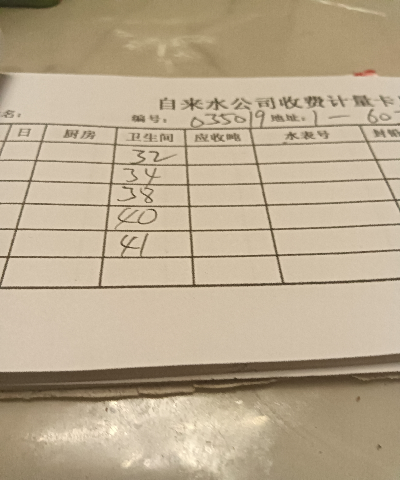 自来水公司收费计量卡
名： 编号：035019 地址：1—60
日 厨房 卫生间 应收吨 水表号 封铅
32
34
38
40
41